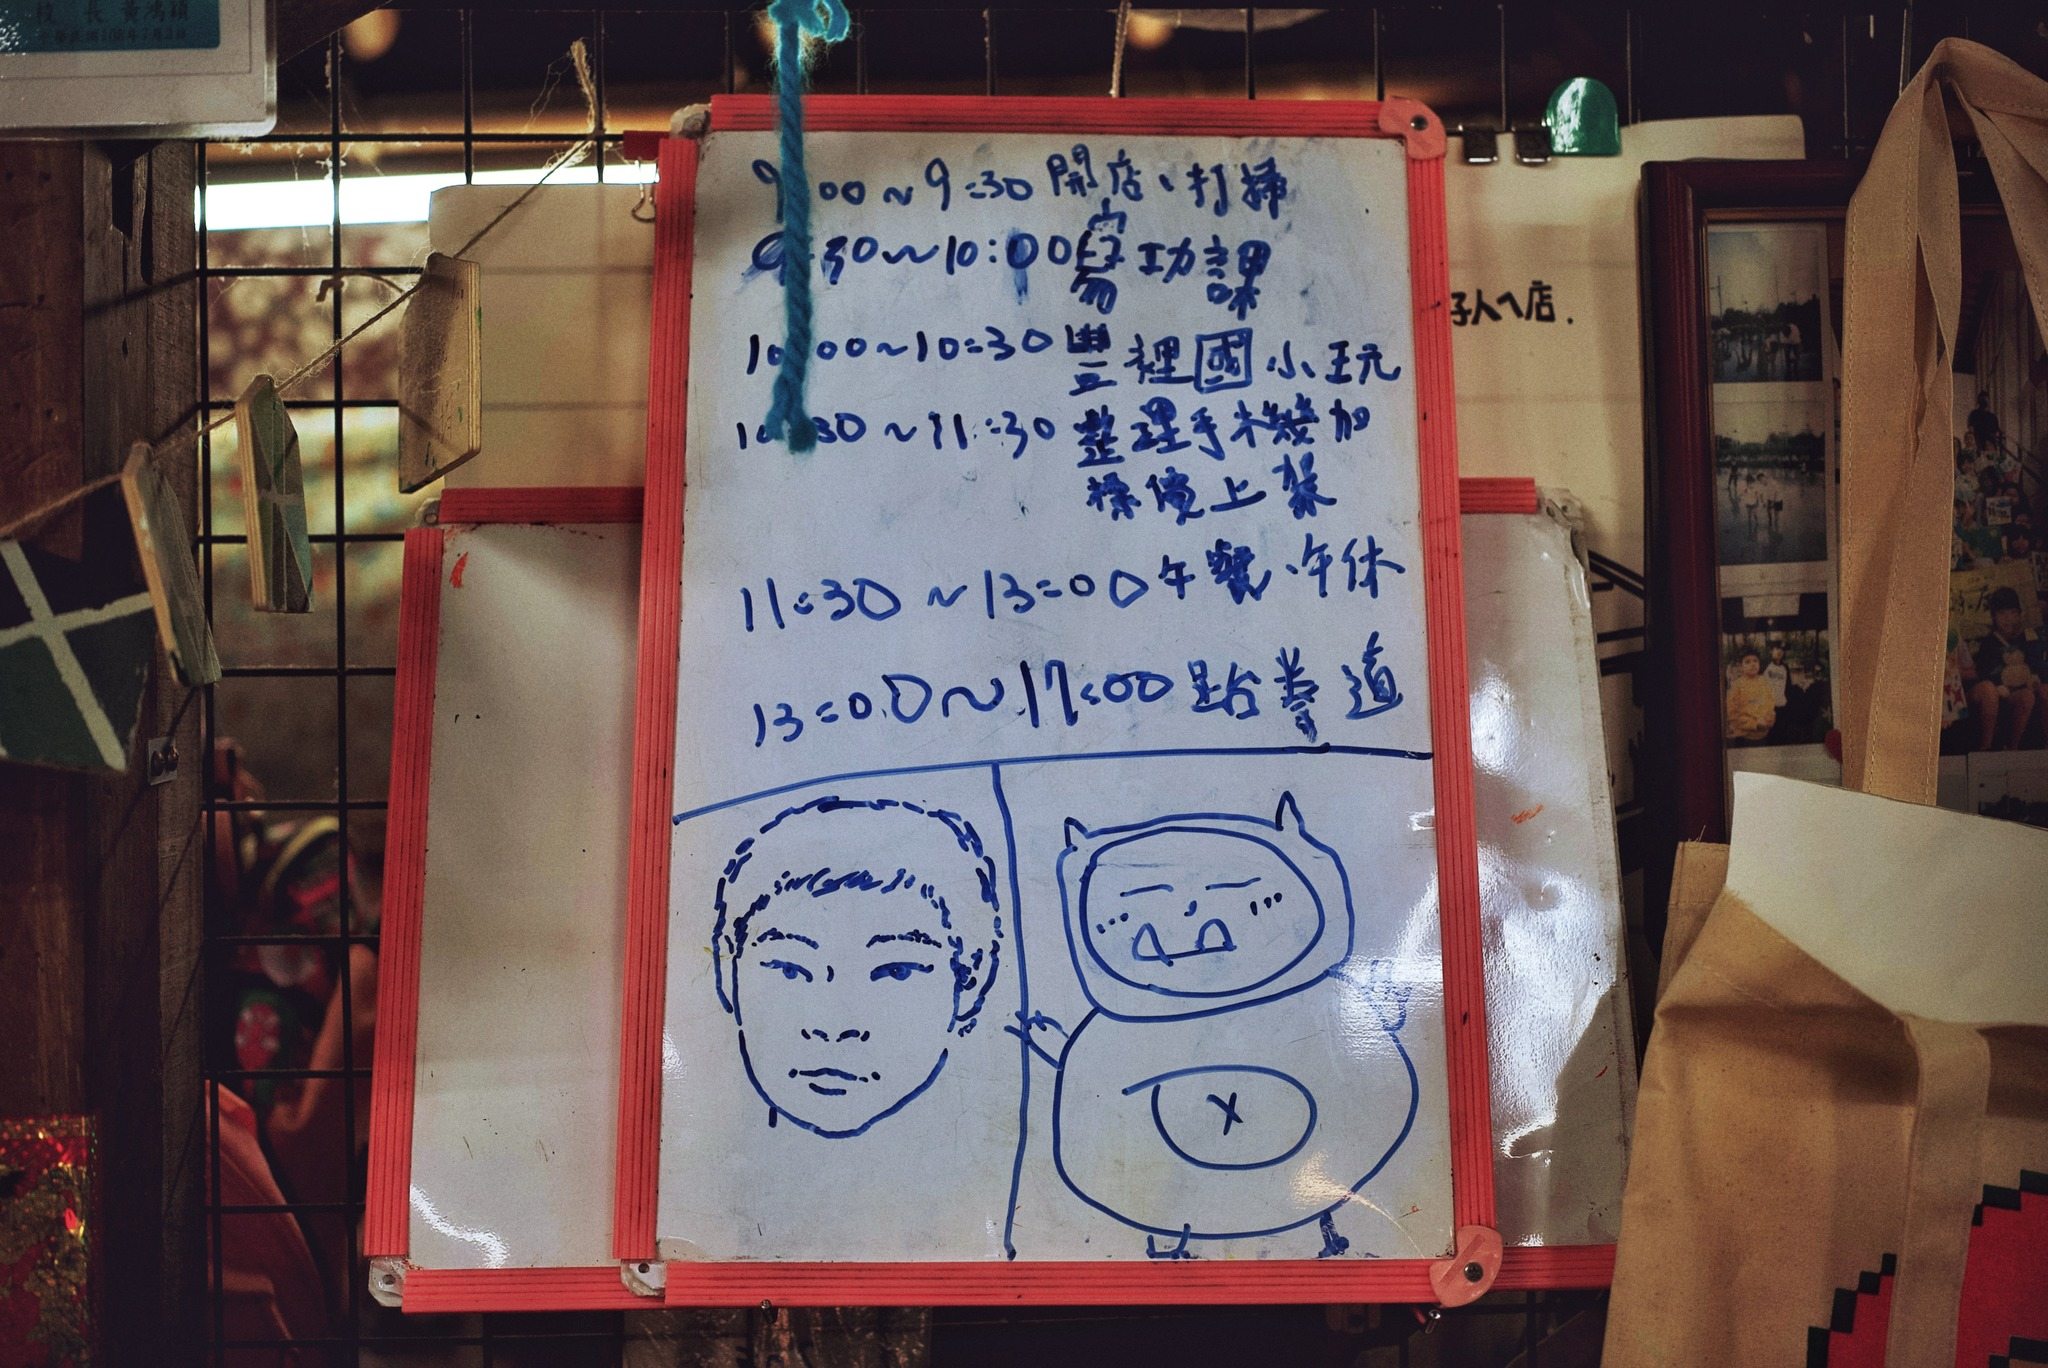 校 長 黃鴻穎
9:00~9:30 開店、打掃
9:30~10:00 寫功課
10:00~10:30 豐裡國小玩
10:30~11:30 整理手機加
標價上架
11:30~13:00 午餐、午休
13:00~17:00 跆拳道
子人ㄟ店.